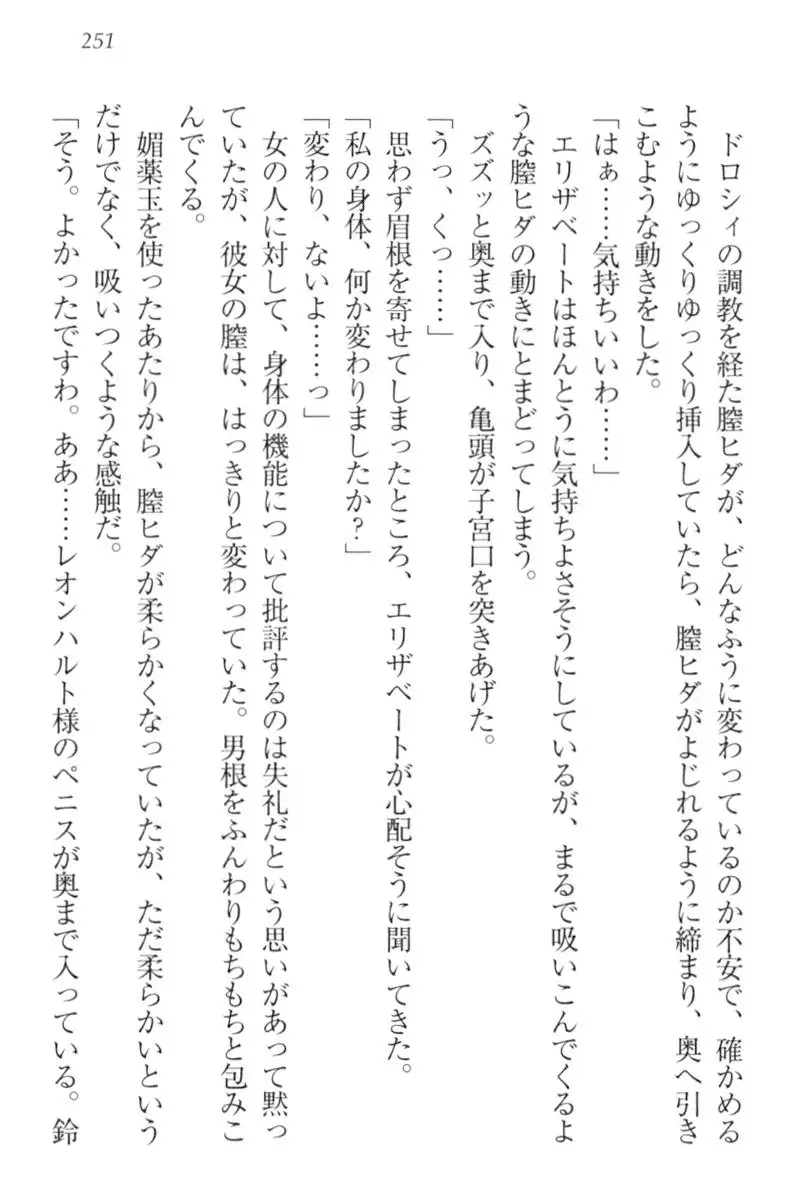 251
ドロシィの調教を経た膣ヒダが、どんなふうに変わっているのか不安で、確かめる
ようにゆっくりゆっくり挿入していたら、膣ヒダがよじれるように締まり、奥へ引き
こむような動きをした。
「はぁ……気持ちいいわ……」
エリザベートはほんとうに気持ちよさそうにしているが、まるで吸いこんでくるよ
うな膣ヒダの動きにとまどってしまう。
ズズッと奥まで入り、亀頭が子宮口を突きあげた。
「うっ、くっ……」
思わず眉根を寄せてしまったところ、エリザベートが心配そうに聞いてきた。
「私の身体、何か変わりましたか？」
「変わり、ないよ……っ」
女の人に対して、身体の機能について批評するのは失礼だという思いがあって黙っ
ていたが、彼女の膣は、はっきりと変わっていた。男根をふんわりもちもちと包みこ
んでくる。
媚薬玉を使ったあたりから、膣ヒダが柔らかくなっていたが、ただ柔らかいという
だけでなく、吸いつくような感触だ。
「そう。よかったですわ。ああ……レオンハルト様のペニスが奥まで入っている。鈴